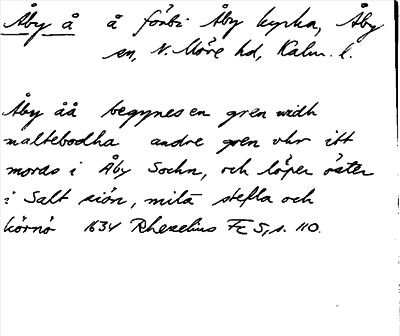 Åby å å förbi Åby kyrka, Åby
sn, N. Möre hd, Kalm. l.
Åby åå begynes en gren widh
maltebodha andre gren vhr itt
moras i Åby Sochn, och löper öster
i Salt siön, milä stefla och
körnö 1634 Rhezelius Fc 5, s. 110.